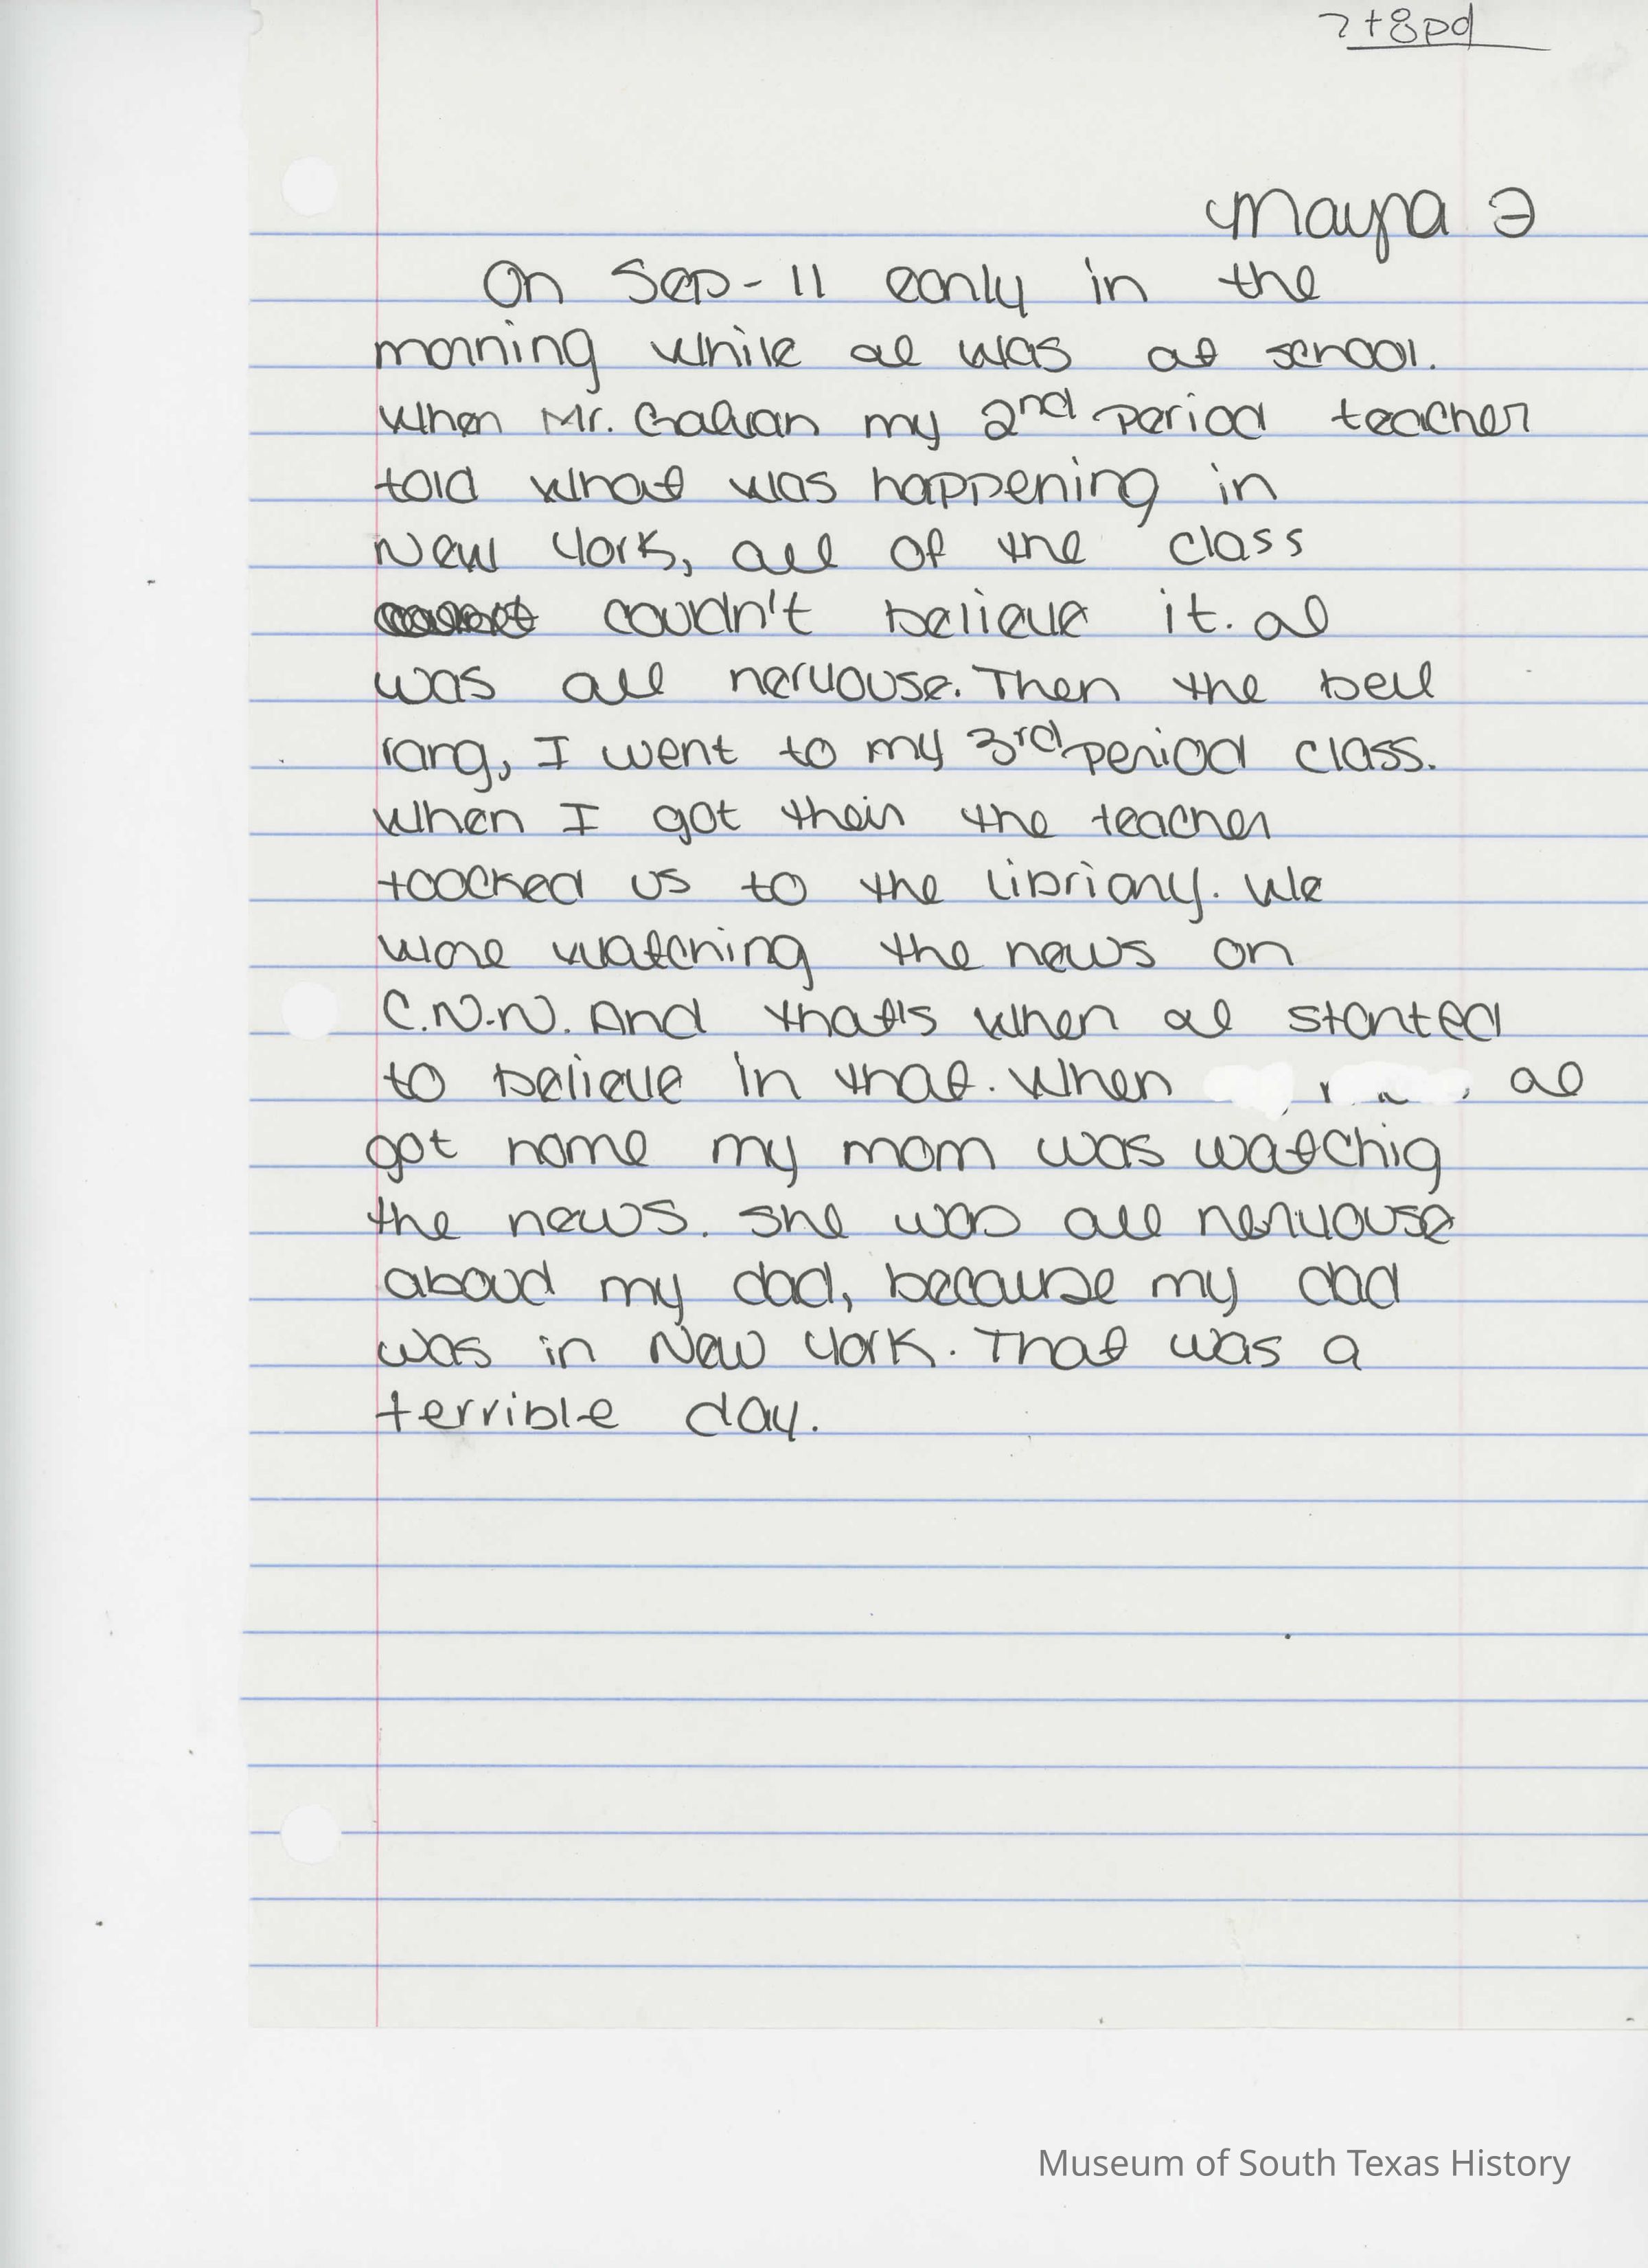 7+8pd
Mayra
On Sep-11 early in the
morning while I was at school.
When Mr. Galvan my 2nd period teacher
told what was happening in
New York, all of the class
coudn't believe it. I
was all nervouse. Then the bell
rang, I went to my 3rd period class.
When I got their the teacher
toocked us to the libriary. We
were watching the news on
C.N.N. And that's when I started
to believe in that. When I
got home my mom was watchig
the news. She was all nervouse
aboud my dad, because my dad
was in New York. That was a
terrible day.
Museum of South Texas History